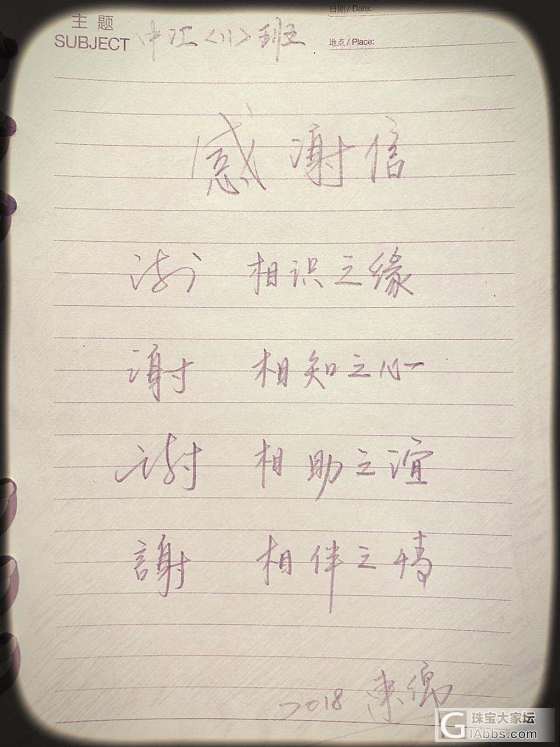 主题
SUBJECT 中江<11>班
日期 / Date:
地点 / Place:
感谢信
谢 相识之缘
谢 相知之心
谢 相助之谊
謝 相伴之情
2018
珠宝大家坛
GIAbbs.com